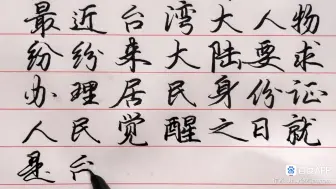 最近台湾大人物
纷纷来大陆要求
办理居民身份证
人民觉醒之日就
是台